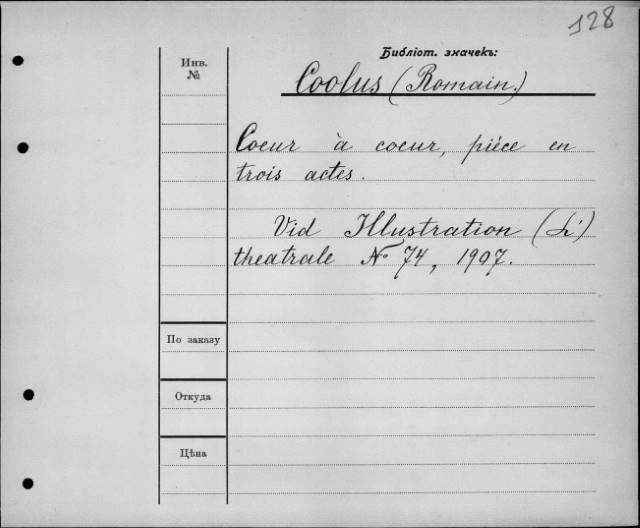 128
Библіот. значекъ:
Инв.
№
Coolus (Romain.)
Coeur à coeur, pièce en
trois actes.
Vid Illustration (L')
theatrale № 74, 1907.
По заказу
Откуда
Цѣна